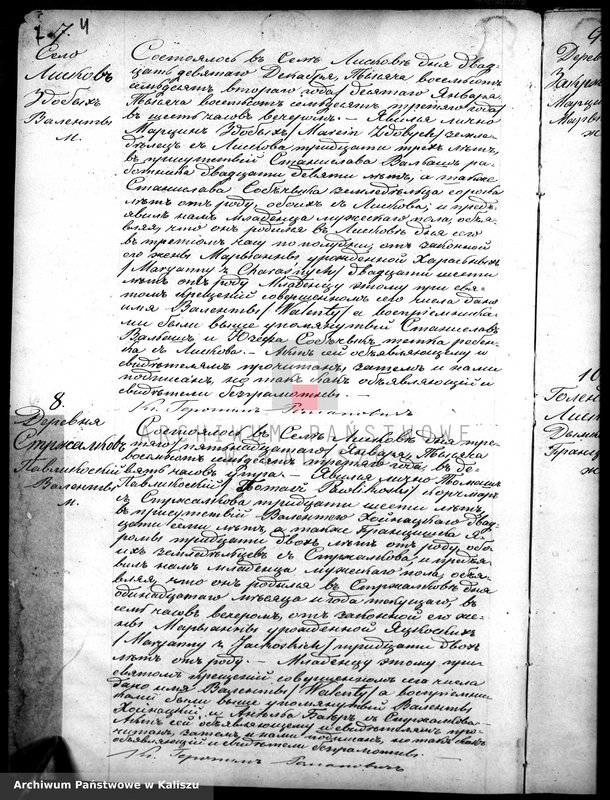 7.
Село
Лисковъ
Здобыхъ
Валенты
м.
Состоялось въ Селѣ Лисковѣ дня двад-
цать девятаго Декабря, тысяча восемьсотъ
семьдесятъ втораго года /десятаго Января
тысяча восемьсотъ семьдесятъ третяго года/
въ шесть часовъ вечеромъ. – Явился лично
Марцинъ Здобыхъ /Marcin Zdobych/ земле-
дѣлецъ съ Лискова, тридцати трехъ лѣтъ,
въ присутствіи Станислава Вальаша ра-
ботника двадцати девяти лѣтъ, а также
Станислава Собчука земледѣльца сорока
лѣтъ отъ роду, обоихъ съ Лискова; и предъ-
явилъ намъ младенца мужескаго пола, объя-
вляя, что онъ родился въ Лисковѣ дня сего
въ третіомъ часу по полудни, отъ законной
его жены Марьянны урожденной
/Maryanny z / двадцати шести
лѣтъ отъ роду. Младенцу этому при свя-
томъ крещеніи совершенномъ сего числа дано
имя Валенты /Walenty/ а воспріемника-
ми были выше упомянутый Станиславъ
Вальашъ и Юзефа Собчукъ тетка ребен-
ка съ Лискова. – Актъ сей объявляющему и
свидѣтелямъ прочитанъ, затемъ и нами
подписанъ, но такъ какъ объявляющій и
свидѣтели безграмотны. –
Кс. Геронимъ Романовичъ
8.
Деревня
Стржалковъ
Павликоскій
Валенты
м.
Состоялось въ Селѣ Лисковѣ дня тре-
тяго /пятьнадцатаго/ Января, тысяча
восемьсотъ семьдесятъ третяго года, въ де-
вять часовъ утра. – Явился лично Томашъ
Павликоскій /Tomasz Pawlikoski/ корчмаръ
съ Стржалкова тридцати шести лѣтъ,
въ присутствіи Валентего Хойнацкаго двад-
цати семи лѣтъ, а также Францишка
тридцати двохъ лѣтъ отъ роду, обо-
ихъ земледѣльцевъ съ Стржалкова; и предъя-
вилъ намъ младенца мужескаго пола, объя-
вляя, что онъ родился въ Стржалковѣ дня
одинадцатаго мѣсяца и года текущаго, въ
семь часовъ вечеромъ, отъ законной его же-
ны Марьянны урожденной Яцкоскихъ
/Maryanny z Jackoskich/ тридцати двохъ
лѣтъ отъ роду. – Младенцу этому при
святомъ крещеніи совершенномъ сего числа
дано имя Валенты /Walenty/ а воспріемни-
ками были выше упомянутый Валенты
Хойнацкій и Анеля съ Стржалкова.
Актъ сей объявляющему и свидѣтелямъ про-
читанъ, затемъ и нами подписанъ, но такъ какъ
объявляющій и свидѣтели безграмотны. –
Кс. Геронимъ Романовичъ
10.
ARCHIWUM PAŃSTWOWE
Archiwum Państwowe w Kaliszu